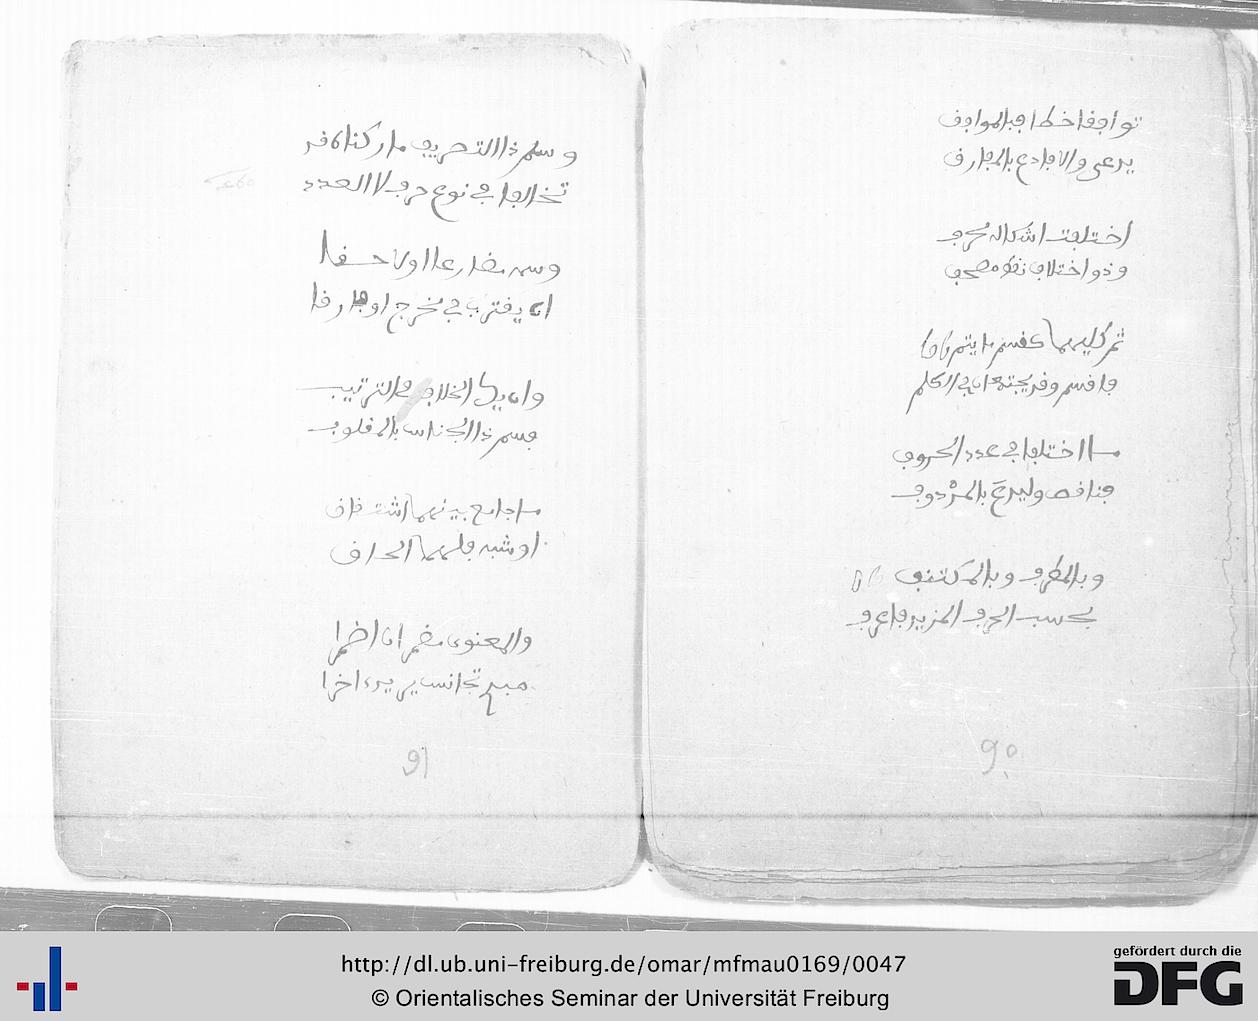 توافقا خطا فبالموافق
يدعى والا فادع بالمفارق
اختلفت اشكاله محرف
وذو اختلاف نقط مصحف
ما اختلفا في عدد الحروف
فناقص وليدع بالمردوف
وبالمطرف وبالمكتنف
بحسب الحرف المزيد فاعرف
90
وسم ذا التحريف
تخالفا في نوع حرف لا العدد
وسمه مضارعا او لاحقا
ان يقترب في مخرج او فارقا
وان يك الخلاف في الترتيب
فسم ذا الجناس بالمقلوب
ما جامع بينهما اشتقاق
او شبه فلهما الحاق
والمعنوي مضمر ان اضمرا
فيه تجانس
91
http://dl.ub.uni-freiburg.de/omar/mfmau0169/0047
© Orientalisches Seminar der Universität Freiburg
gefördert durch die
DFG